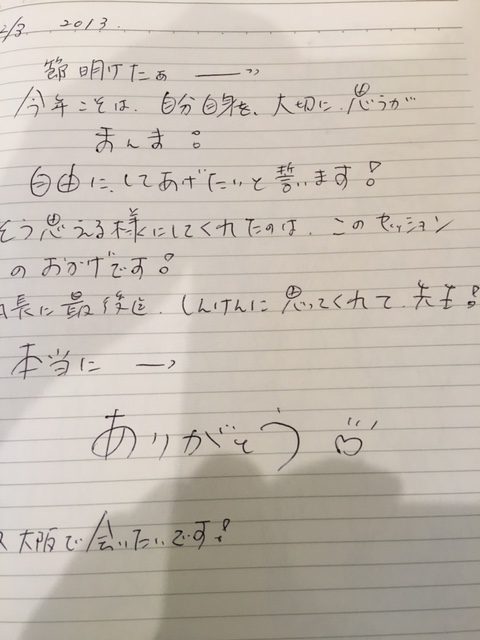 2/3. 2013.
節明けたぁ →〃
今年こそは、自分自身を、大切に、思うが
まんま!
自由に、してあげたいと誓います!
そう思える様にしてくれたのは、このセッション
のおかげです!
長に最後迄、しんけんに思ってくれて、先生!
本当に →
ありがとう
大阪で会いたいです!